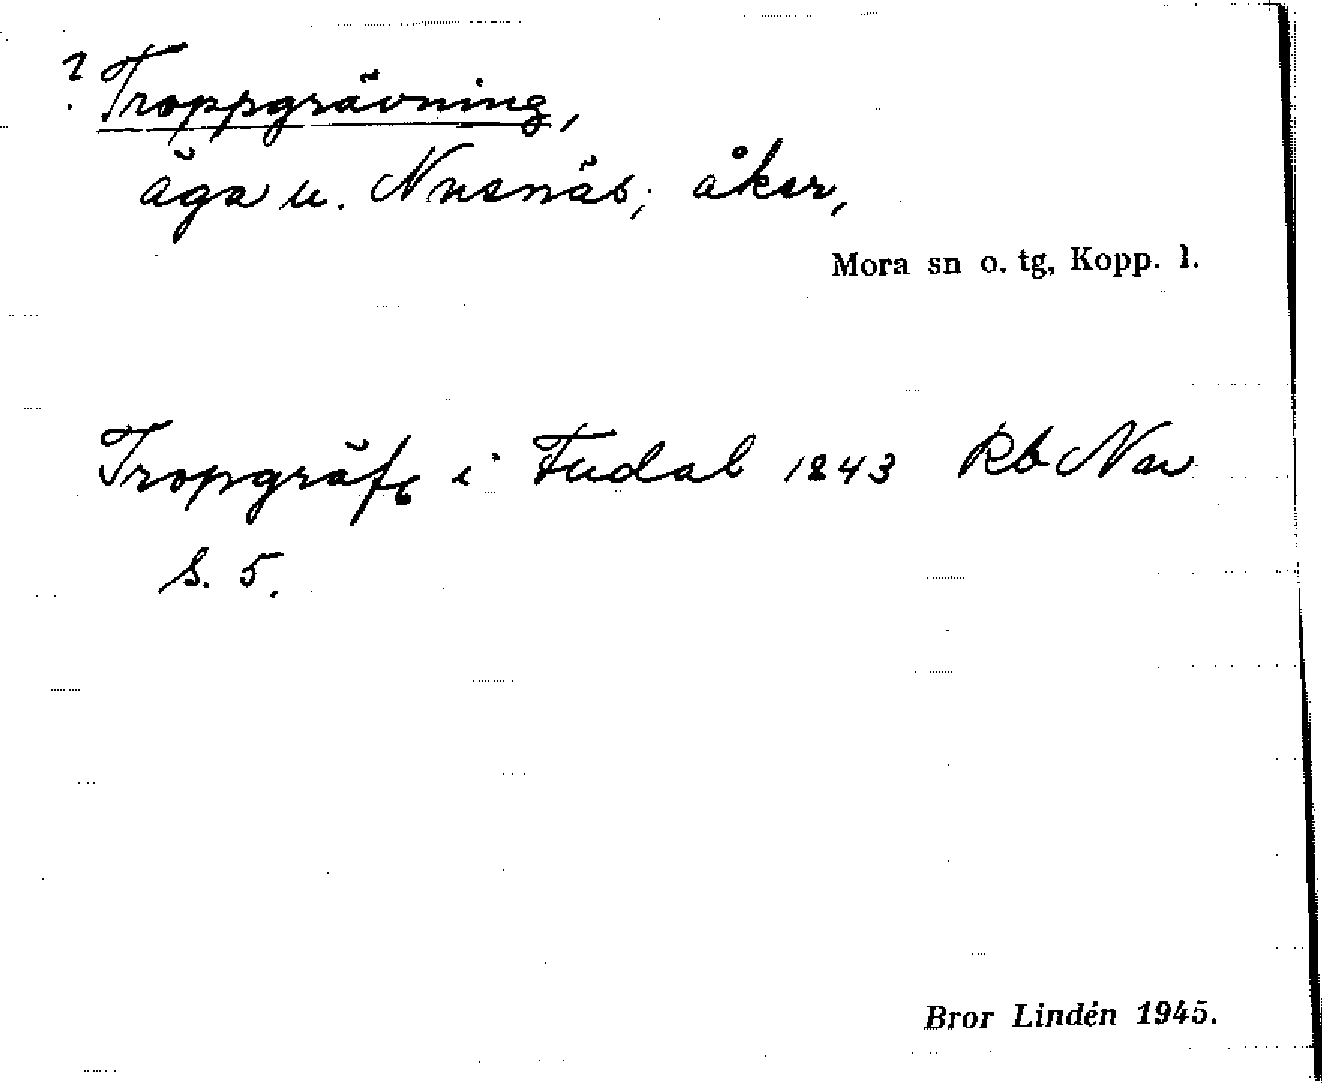 ? Troppgrävning,
äga u. Nusnäs; åker,
Mora sn o. tg, Kopp. l.
Tropgräfv i Fudal 1843 Rb Nav
s. 5.
Bror Lindén 1945.